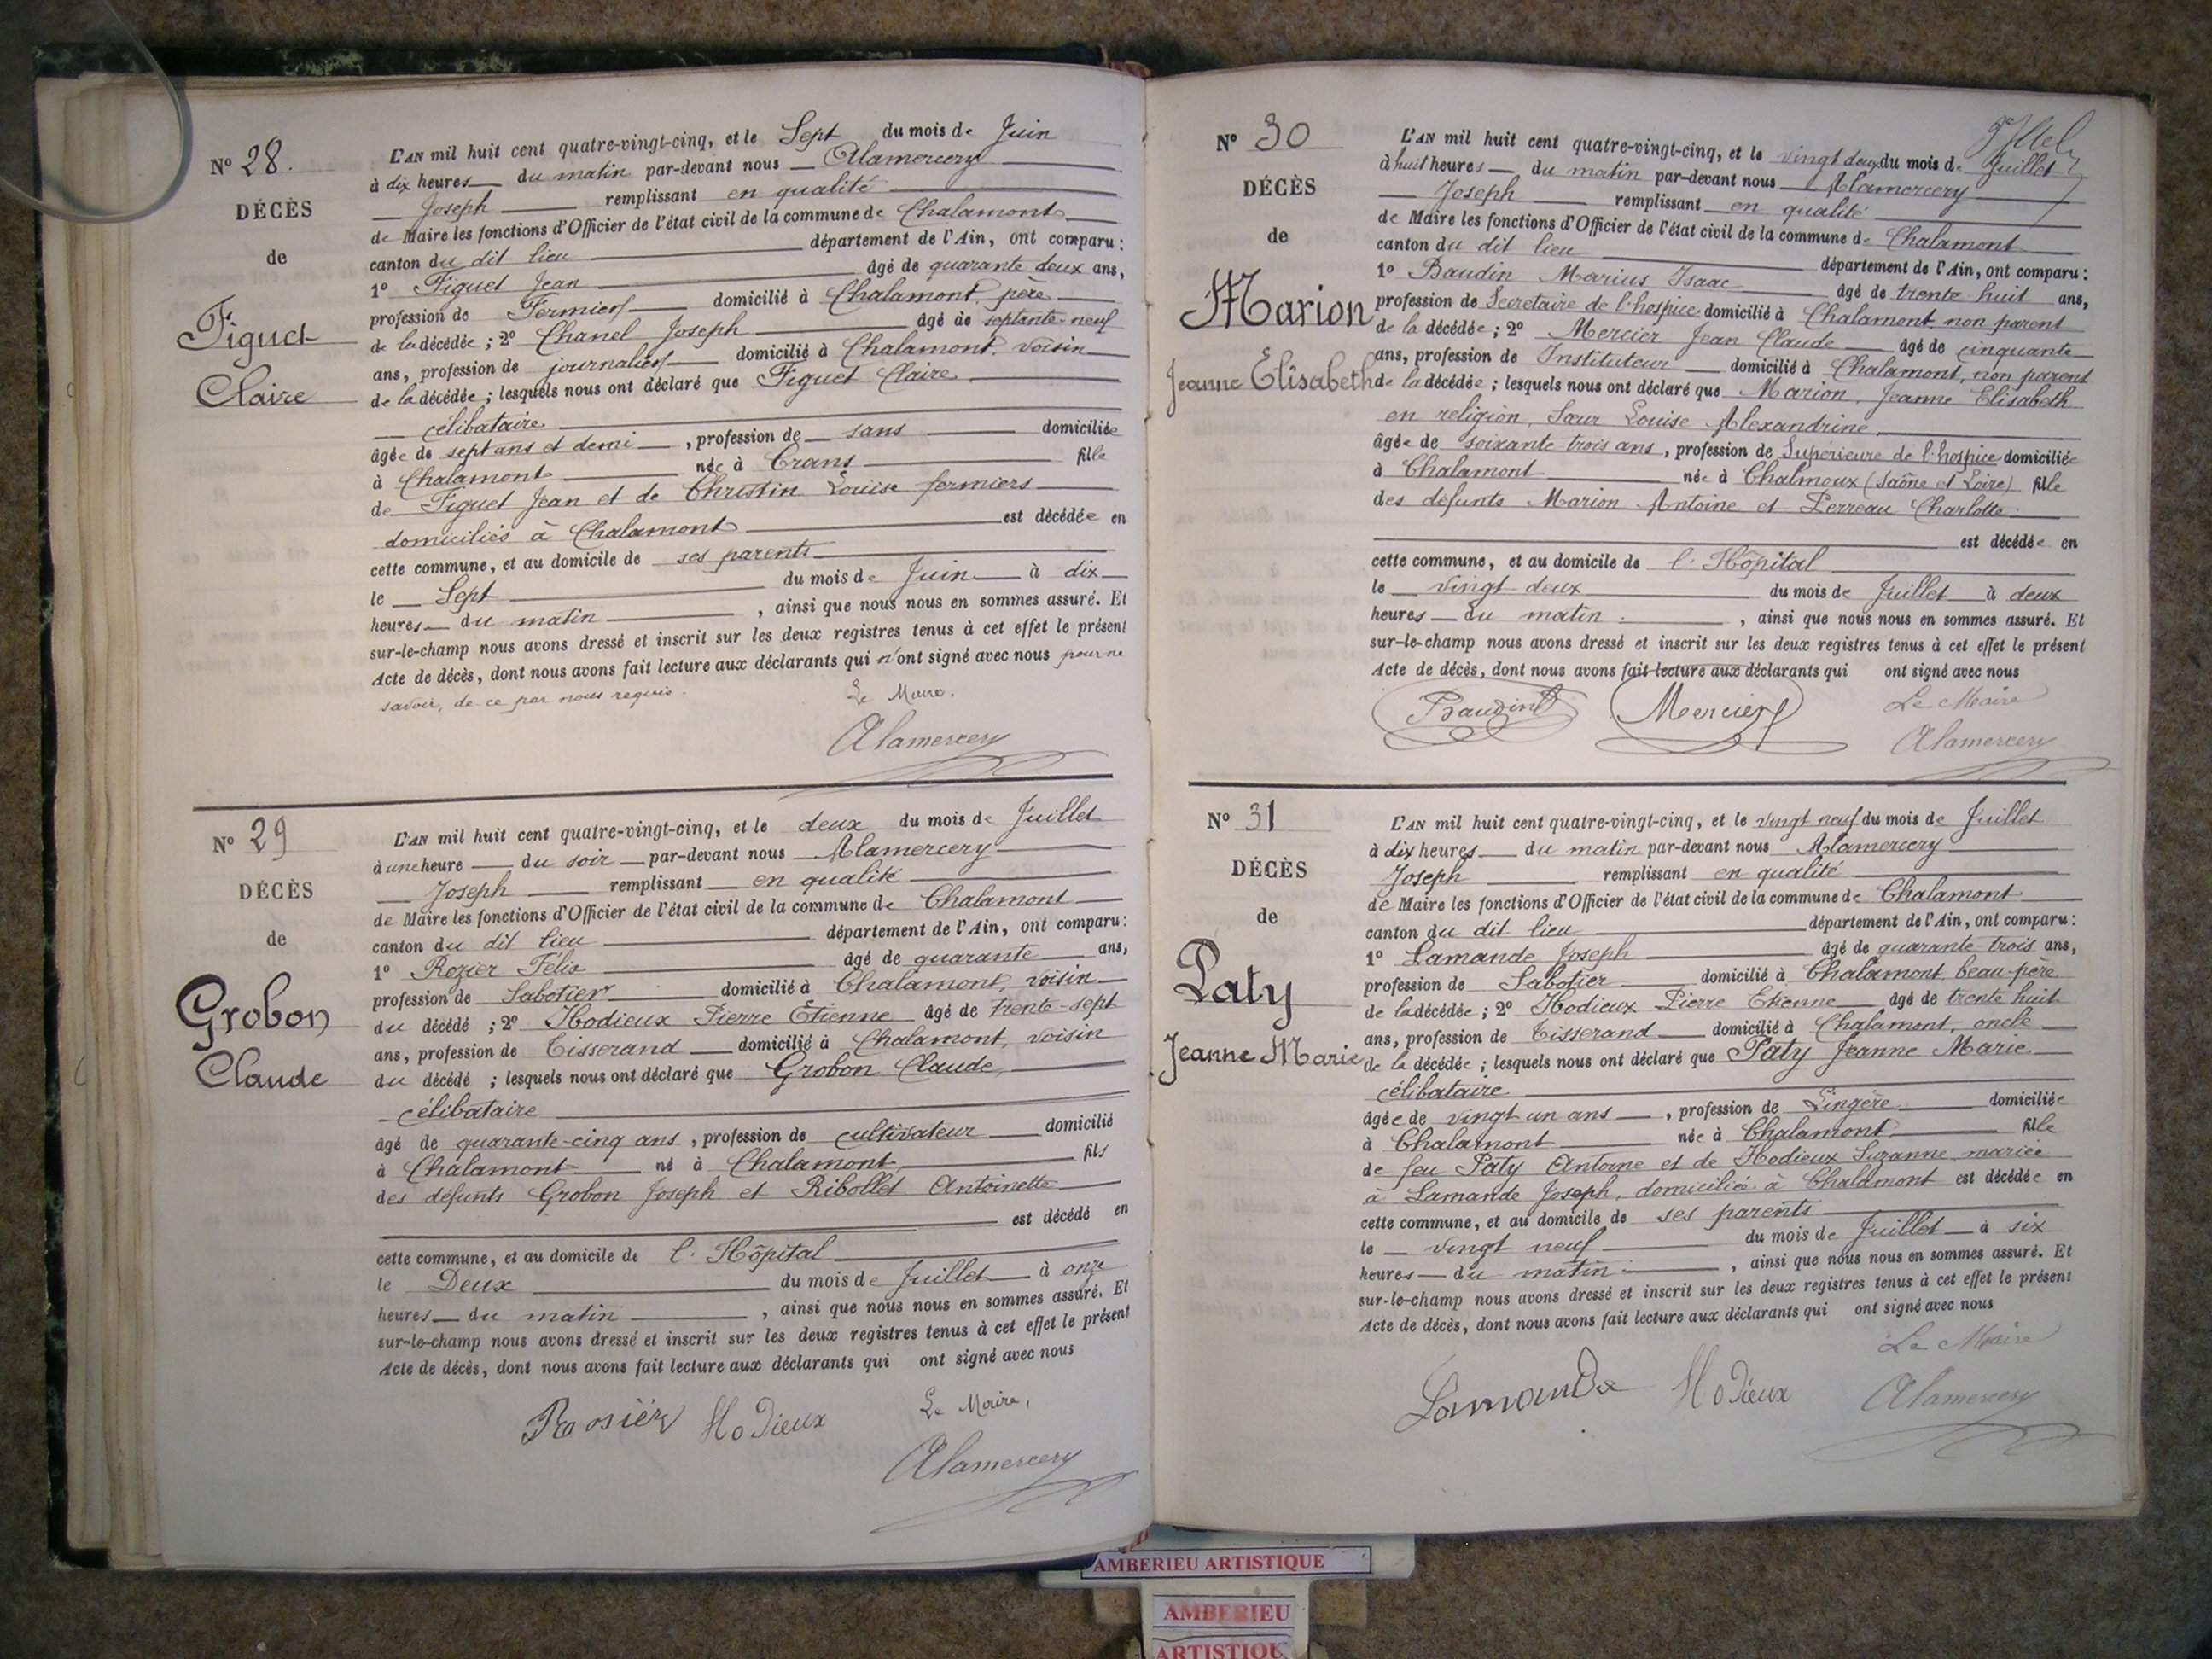 N° 28.
DÉCÈS
de
Figuet
Claire
L'AN mil huit cent quatre-vingt-cinq, et le Sept du mois de Juin
à dix heures du matin par-devant nous Alamercery
Joseph remplissant en qualité
de Maire les fonctions d'Officier de l'état civil de la commune de Chalamont
canton du dit lieu département de l'Ain, ont comparu :
1° Figuet Jean âgé de quarante deux ans,
profession de Fermier domicilié à Chalamont, père
de la décédée ; 2° Chanel Joseph âgé de septante-neuf
ans, profession de journalier domicilié à Chalamont, voisin
de la décédée ; lesquels nous ont déclaré que Figuet Claire
célibataire
âgée de sept ans et demi, profession de sans domiciliée
à Chalamont née à Crans fille
de Figuet Jean et de Christin Louise fermiers
domiciliés à Chalamont est décédée en
cette commune, et au domicile de ses parents
le Sept du mois de Juin à dix
heures du matin, ainsi que nous nous en sommes assuré. Et
sur-le-champ nous avons dressé et inscrit sur les deux registres tenus à cet effet le présent
Acte de décès, dont nous avons fait lecture aux déclarants qui n'ont signé avec nous pour ne
savoir, de ce par nous requis.
Le Maire.
Alamercery
N° 29
DÉCÈS
de
Grobon
Claude
L'AN mil huit cent quatre-vingt-cinq, et le deux du mois de Juillet
à une heure du soir par-devant nous Alamercery
Joseph remplissant en qualité
de Maire les fonctions d'Officier de l'état civil de la commune de Chalamont
canton du dit lieu département de l'Ain, ont comparu :
1° Rozier Félix âgé de quarante ans,
profession de Sabotier domicilié à Chalamont, voisin
du décédé ; 2° Hodieux Pierre Etienne âgé de trente-sept
ans, profession de Tisserand domicilié à Chalamont, voisin
du décédé ; lesquels nous ont déclaré que Grobon Claude,
célibataire
âgé de quarante-cinq ans, profession de cultivateur domicilié
à Chalamont né à Chalamont, fils
des défunts Grobon Joseph et Ribollet Antoinette
est décédé en
cette commune, et au domicile de l'Hôpital
le Deux du mois de Juillet à onze
heures du matin, ainsi que nous nous en sommes assuré. Et
sur-le-champ nous avons dressé et inscrit sur les deux registres tenus à cet effet le présent
Acte de décès, dont nous avons fait lecture aux déclarants qui ont signé avec nous
Rosier Hodieux Le Maire,
Alamercery
N° 30
DÉCÈS
de
Marion
Jeanne Elisabeth
L'AN mil huit cent quatre-vingt-cinq, et le vingt deux du mois de Juillet
à huit heures du matin par-devant nous Alamercery
Joseph remplissant en qualité
de Maire les fonctions d'Officier de l'état civil de la commune de Chalamont
canton du dit lieu département de l'Ain, ont comparu :
1° Baudin Marius Isaac âgé de trente huit ans,
profession de Secrétaire de l'hospice domicilié à Chalamont non parent
de la décédée ; 2° Mercier Jean Claude âgé de cinquante
ans, profession de Instituteur domicilié à Chalamont, non parent
de la décédée ; lesquels nous ont déclaré que Marion, Jeanne Elisabeth
en religion, Sœur Louise Alexandrine,
âgée de soixante trois ans, profession de Supérieure de l'hospice domiciliée
à Chalamont née à Chalmoux (Saône et Loire) fille
des défunts Marion Antoine et Perreau Charlotte.
est décédée en
cette commune, et au domicile de l'Hôpital
le vingt deux du mois de Juillet à deux
heures du matin, ainsi que nous nous en sommes assuré. Et
sur-le-champ nous avons dressé et inscrit sur les deux registres tenus à cet effet le présent
Acte de décès, dont nous avons fait lecture aux déclarants qui ont signé avec nous
Baudin Mercier Le Maire
Alamercery
N° 31
DÉCÈS
de
Paty
Jeanne Marie
L'AN mil huit cent quatre-vingt-cinq, et le vingt neuf du mois de Juillet
à dix heures du matin par-devant nous Alamercery
Joseph remplissant en qualité
de Maire les fonctions d'Officier de l'état civil de la commune de Chalamont
canton du dit lieu département de l'Ain, ont comparu :
1° Lamande Joseph âgé de quarante trois ans,
profession de Sabotier domicilié à Chalamont beau-père
de la décédée ; 2° Hodieux Pierre Etienne âgé de trente huit
ans, profession de Tisserand domicilié à Chalamont, oncle
de la décédée ; lesquels nous ont déclaré que Paty Jeanne Marie
célibataire
âgée de vingt un ans, profession de Lingère domiciliée
à Chalamont née à Chalamont fille
de feu Paty Antoine et de Hodieux Suzanne mariée
à Lamande Joseph, domiciliée à Chalamont est décédée en
cette commune, et au domicile de ses parents
le vingt neuf du mois de Juillet à six
heures du matin, ainsi que nous nous en sommes assuré. Et
sur-le-champ nous avons dressé et inscrit sur les deux registres tenus à cet effet le présent
Acte de décès, dont nous avons fait lecture aux déclarants qui ont signé avec nous
Le Maire
Lamande Hodieux Alamercery
AMBERIEU ARTISTIQUE
AMBERIEU
ARTISTIQUE